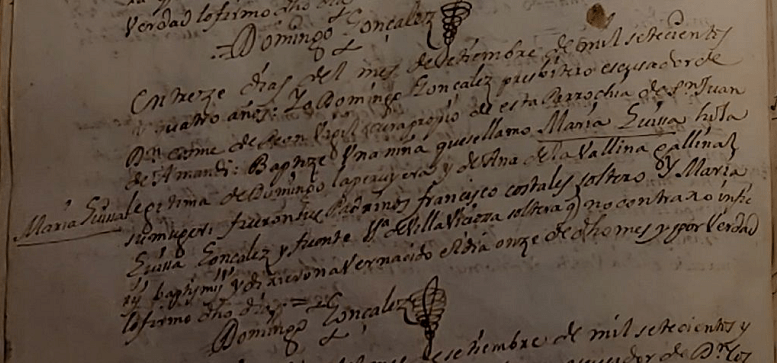 verdad lo firmo dho dia
Domingo Gonçalez
En treze dias del mes de setiembre de mil setecientos
y quatro años: Yo Domingo Gonçalez presbitero escusador de
Dn Cosme de Leon Vigil cura propio de esta Parrochia de Sn Juan
de Amandi: Baptize Una niña que se llamo Maria Luissa hija
Maria Luissa
legitima de Domingo la peruyera y de Ana de la Vallina Gallinal
su muger: fueron sus Padrinos francisco costales soltero Y Maria
Luissa Gonçalez y fuente Va de Villa Viciossa soltera no contraxo
y dixeron aver nacido el dia onze de dho mes y por Verdad
lo firmo dho dia
Domingo Gonçalez
setiembre de mil setecientos y
escusador de Dn